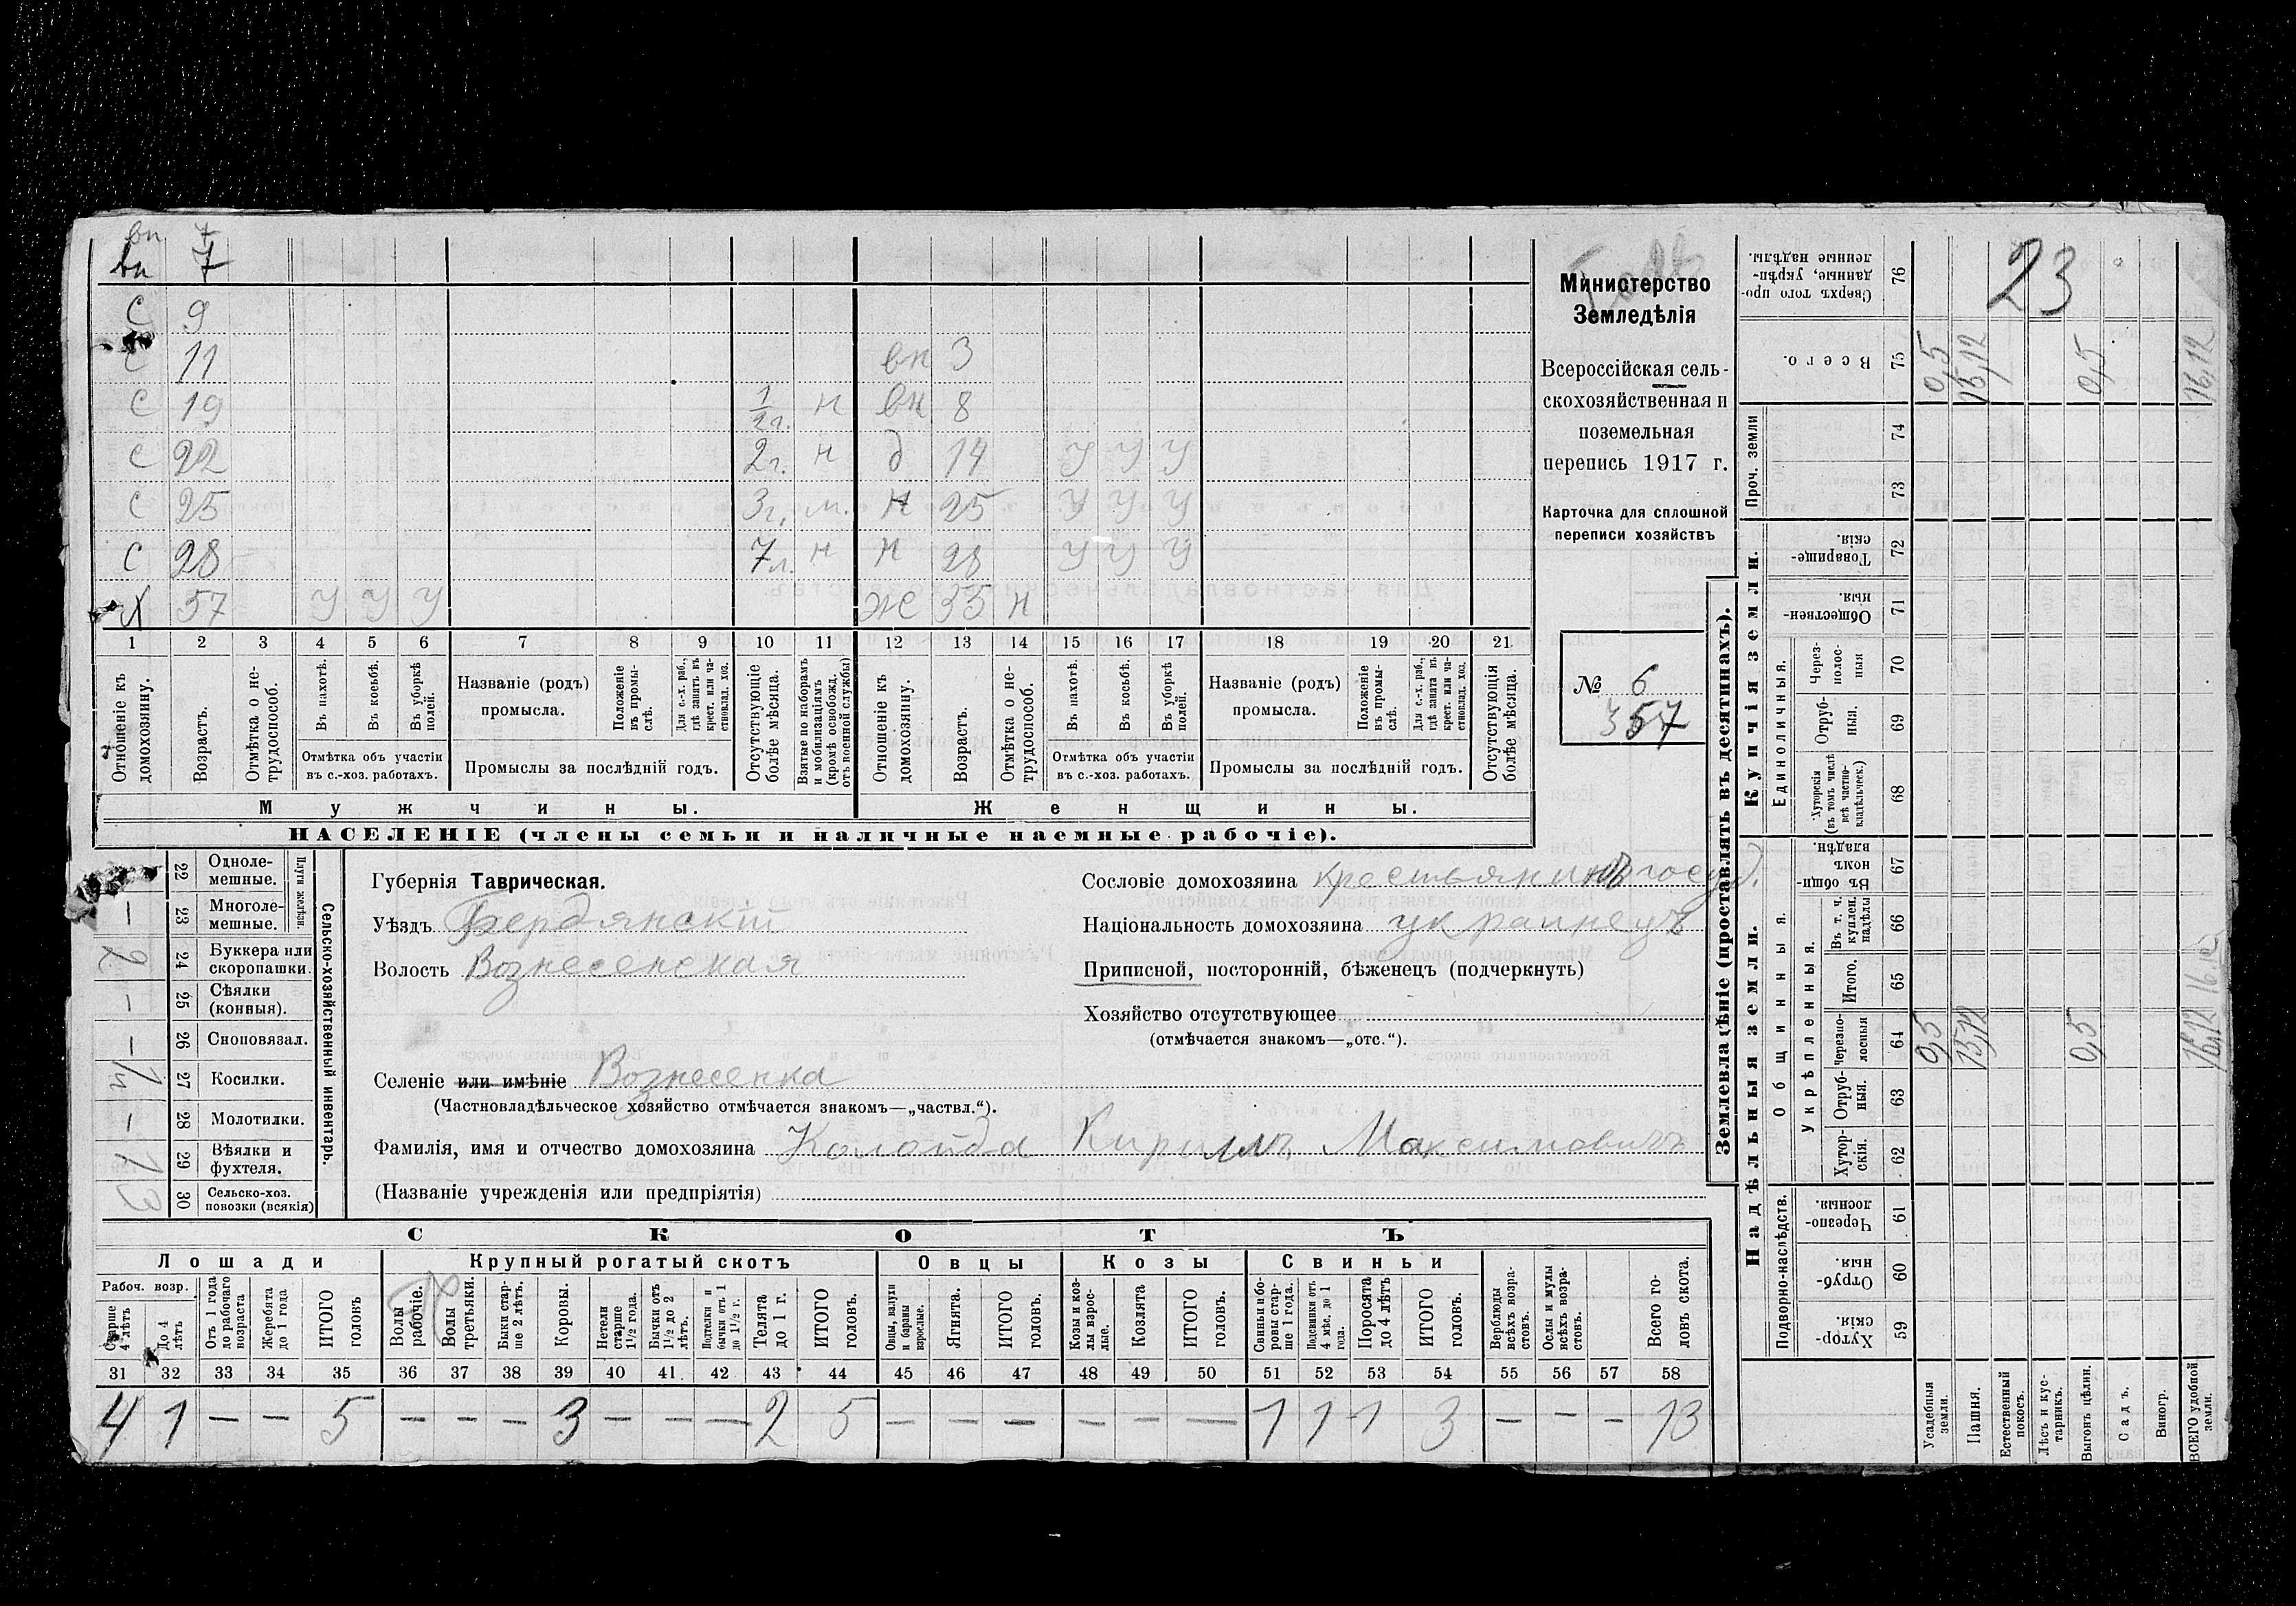 вн 7
вн 7
С 9
С 11 вн 3
С 19 1/2 г. н вн 8
С 22 2 г. н д 14 У У У
С 25 3 г. м. н 25 У У У
С 28 7 л. н н 28 У У У
Х 57 У У У Ж 35 н
1 2 3 4 5 6 7 8 9 10 11 12 13 14 15 16 17 18 19 20 21
Отношеніе къ домохозяину.
Возрастъ.
Отмѣтка о нетрудоспособ.
Въ пахотѣ.
Въ косьбѣ.
Въ уборкѣ полей.
Отмѣтка объ участіи
въ с.-хоз. работахъ.
Названіе (родъ)
промысла.
Положеніе въ промыслѣ.
Для с.-х. раб., гдѣ занятъ въ крест. или частновлад. хоз.
Промыслы за послѣдній годъ.
Отсутствующіе болѣе мѣсяца.
Взятые по наборамъ и мобилизаціямъ (кромѣ освобожд. отъ военной службы)
Отношеніе къ домохозяину.
Возрастъ.
Отмѣтка о нетрудоспособ.
Въ пахотѣ.
Въ косьбѣ.
Въ уборкѣ полей.
Отмѣтка объ участіи
въ с.-хоз. работахъ.
Названіе (родъ)
промысла.
Положеніе въ промыслѣ.
Для с.-х. раб., гдѣ занята въ крест. или частновлад. хоз.
Промыслы за послѣдній годъ.
Отсутствующія болѣе мѣсяца.
Мужчины. Женщины.
НАСЕЛЕНІЕ (члены семьи и наличные наемные рабочіе).
Министерство
Земледѣлія
Всероссійская сель-
скохозяйственная и
поземельная
перепись 1917 г.
Карточка для сплошной
переписи хозяйствъ
№ 6
357
22 Одноле-мешные.
23 Многоле-мешные. —
Плуги желѣзн.
24 Буккера или скоропашки. 2
25 Сѣялки (конныя). —
26 Сноповязал. —
27 Косилки.
28 Молотилки. —
29 Вѣялки и фухтеля. 1
30 Сельско-хоз. повозки (всякія) 3
Сельско-хозяйственный инвентарь.
Губернія Таврическая.
Уѣздъ Бердянскій
Волость Вознесенская
Сословіе домохозяина крестьянинъ госуд.
Національность домохозяина украинецъ
Приписной, посторонній, бѣженецъ (подчеркнуть)
Хозяйство отсутствующее
(отмѣчается знакомъ—„отс.“).
Селеніе или имѣніе Вознесенка
(Частновладѣльческое хозяйство отмѣчается знакомъ—„частвл.“).
Фамилія, имя и отчество домохозяина Колойда Кирилъ Максимовичъ
(Названіе учрежденія или предпріятія)
СКОТЪ
Лошади Крупный рогатый скотъ Овцы Козы Свиньи
Рабоч. возр.
Старше 4 лѣтъ
До 4 лѣтъ
Отъ 1 года до рабочаго возраста
Жеребята до 1 года
ИТОГО головъ
Волы рабочіе.
Волы третьяки.
Быки старше 2 лѣтъ.
Коровы.
Нетели старше 1 1/2 года.
Бычки отъ 1 1/2 до 2 лѣтъ.
Подтелки и бычки отъ 1 до 1 1/2 г.
Телята до 1 г.
ИТОГО головъ.
Овцы, валухи и бараны взрослые.
Ягнята.
ИТОГО головъ.
Козы и козлы взрослые.
Козлята
ИТОГО головъ.
Свиньи и боровы старше 1 года.
Подсвинки отъ 4 мѣс. до 1 года.
Поросята до 4 лѣтъ
ИТОГО головъ.
Верблюды всѣхъ возрастовъ.
Ослы и мулы всѣхъ возрастовъ.
Всего головъ скота.
31 32 33 34 35 36 37 38 39 40 41 42 43 44 45 46 47 48 49 50 51 52 53 54 55 56 57 58
4 1 — — 5 — — — 3 — — — 2 5 — — — — — — 1 1 1 3 — — — 13
Землевладѣніе (проставлять въ десятинахъ).
Купчія земли.
Надѣльныя земли.
23
Сверхъ того проданные, укрѣпленные надѣлы. 76
Всего. 75 0,5 15,12 0,5 16,12
Проч. земли 74
73
Товарищескія. 72
Общественныя. 71
Единоличныя.
Черезполосныя 70
Отрубныя. 69
Хуторскія (въ томъ числѣ всѣ частновладѣльческ.) 68
Общинныя
Въ общиномъ владѣн. 67
Укрѣпленныя.
Въ т. ч. куплен. надѣлы 66
Итого. 65
Черезполосныя 64 0,5 15,12 0,5 16,12
Отрубныя. 63
Хуторскія. 62
Подворно-наслѣдств.
Черезполосныя. 61
Отрубныя. 60
Хуторскія. 59
Усадебныя земли.
Пашня.
Естественный покосъ.
Лѣсъ и кустарникъ.
Выгонъ цѣлин.
Садъ.
Виногр.
ВСЕГО удобной земли.